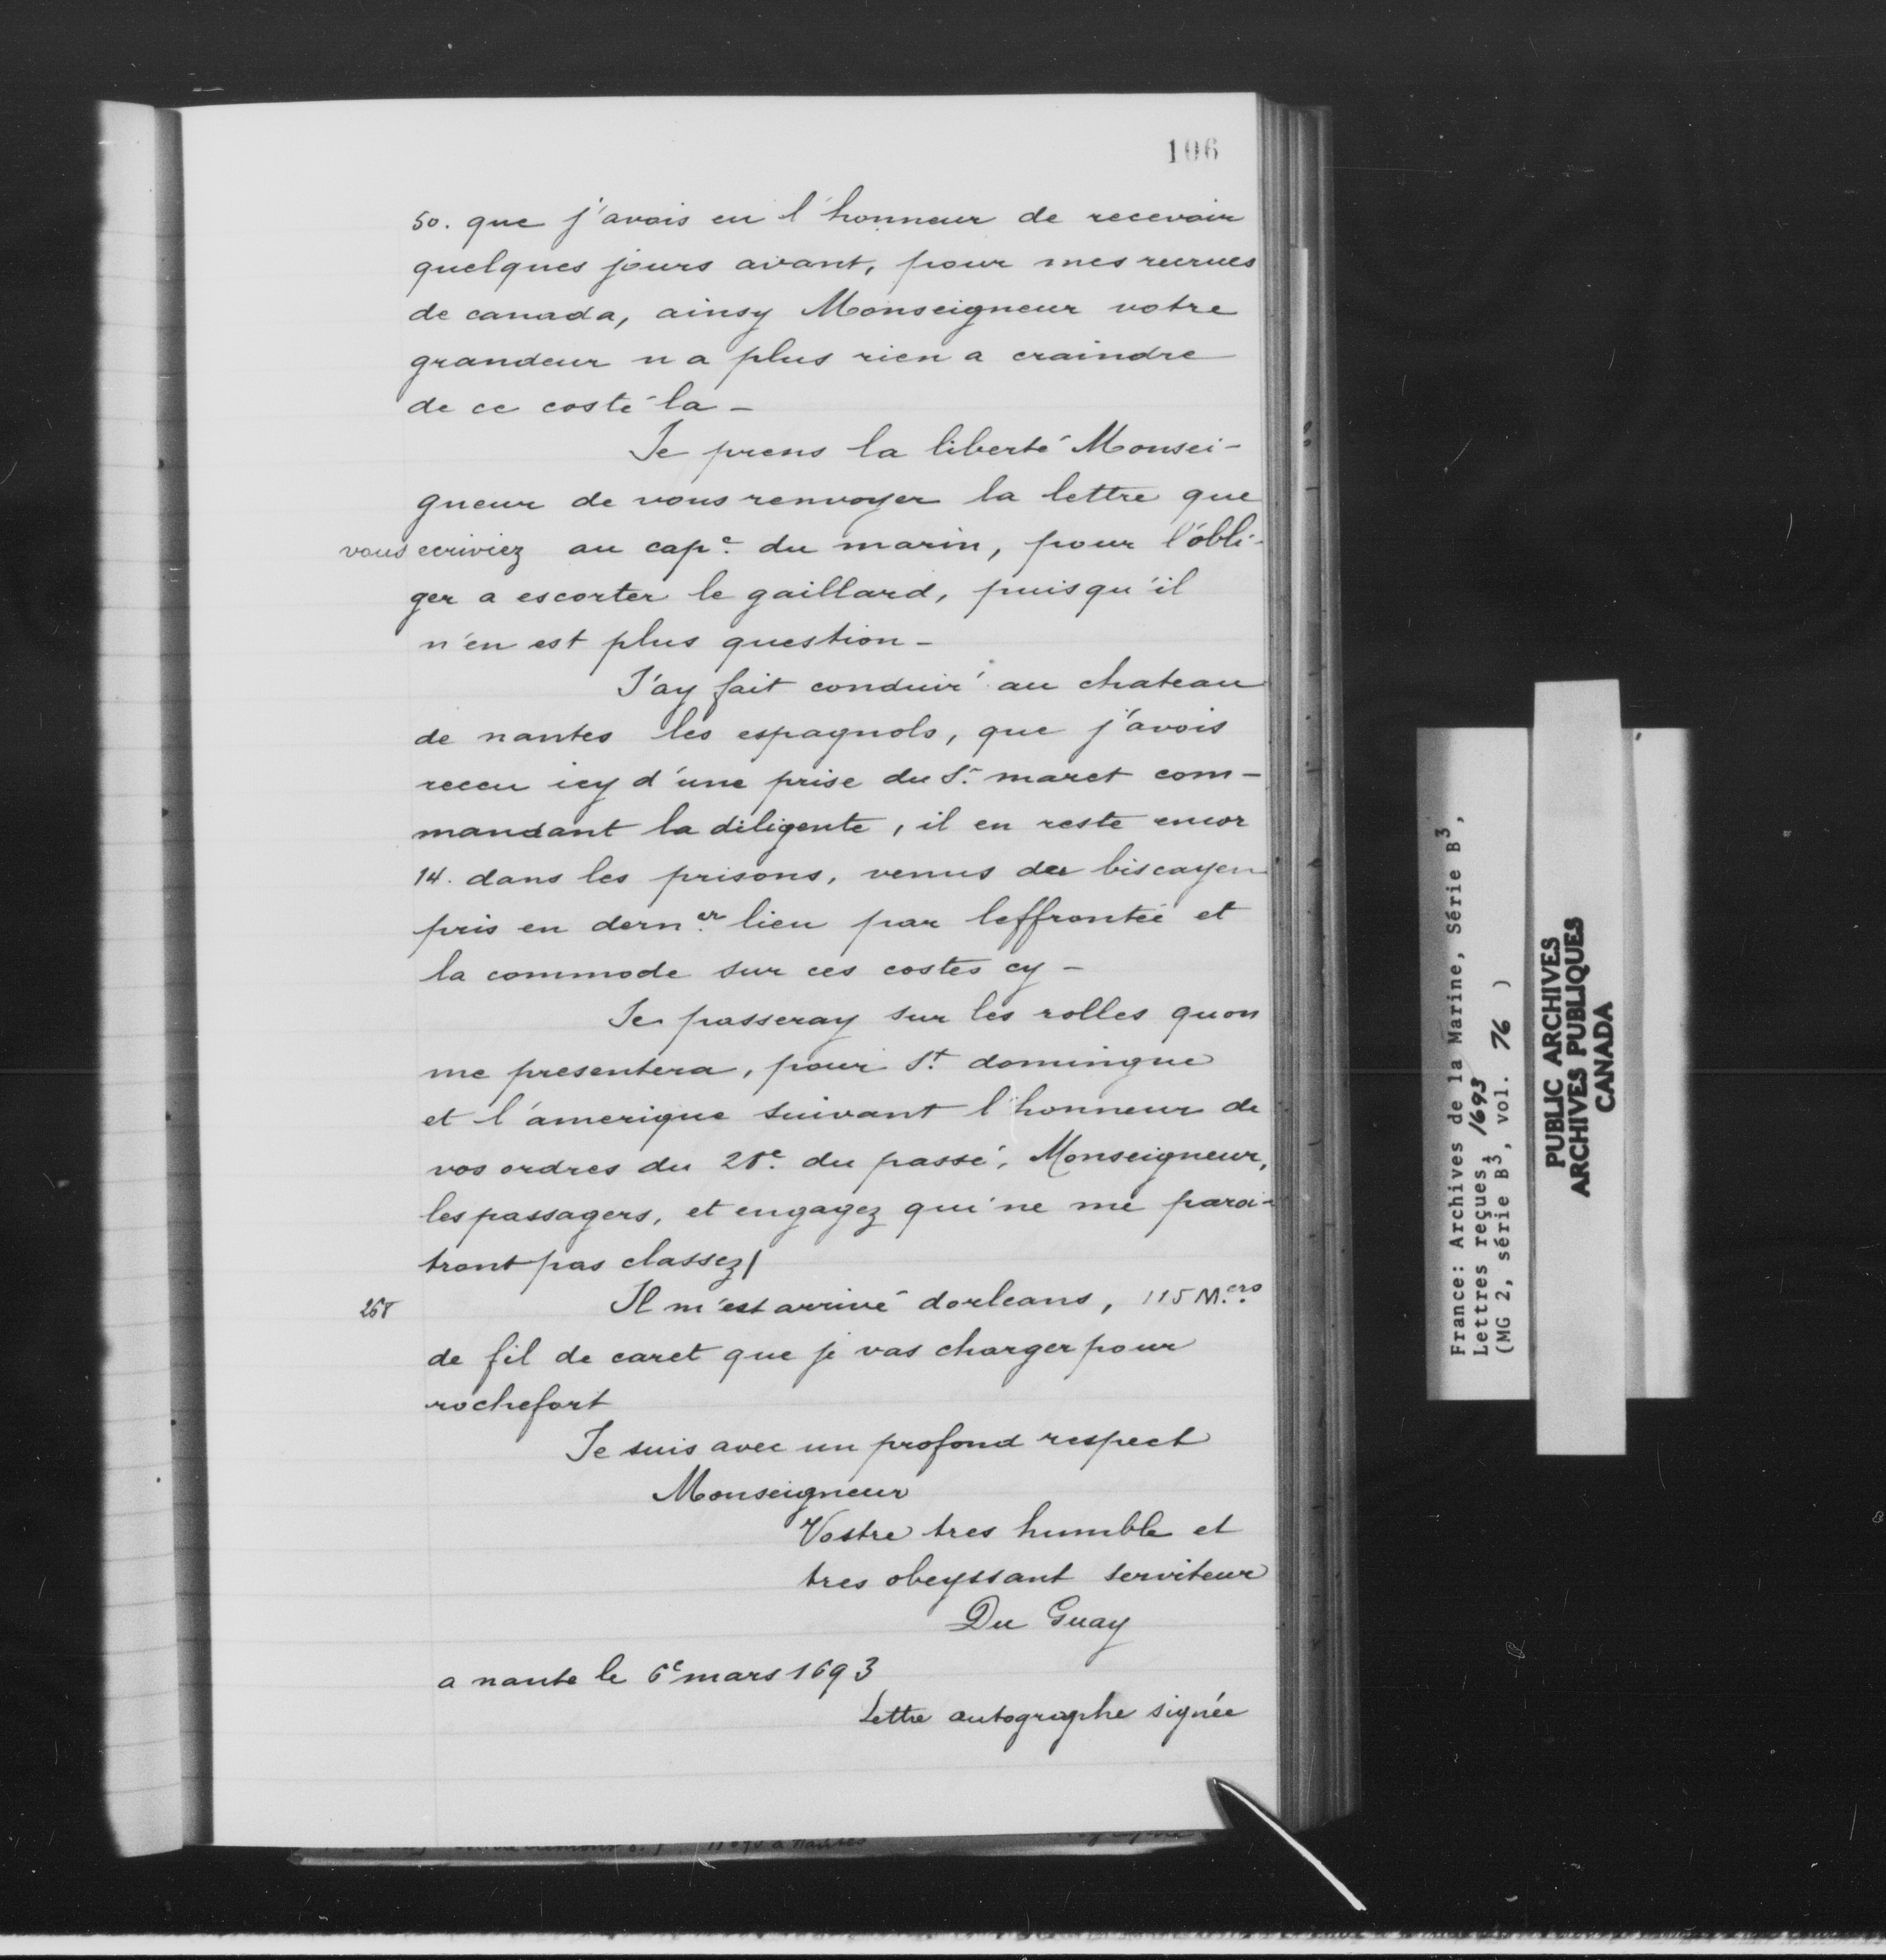 106
50. que j'avais eu l'honneur de recevoir
quelques jours avant, pour mes recrues
de canada, ainsy Monseigneur votre
grandeur n a plus rien a craindre
de ce costé la -
Je prens la liberté Monsei-
gneur de vous renvoyer la lettre que
vous ecriviez au cap.e du marin, pour l'óbli-
ger a escorter le gaillard, puisqu'il
n'en est plus question -
J'ay fait conduir' au chateau
de nantes les espagnols, que j'avois
receu icy d'une prise du Sr. maret com-
mandant la diligente, il en reste encor
14. dans les prisons, venus du biscayen
pris en dern.er lieu par leffrontée et
la commode sur ces costes cy -
Je passeray sur les rolles quon
me presentera, pour St. domingue
et l'amerique suivant l'honneur de
vos ordres du 28e. du passé, Monseigneur,
les passagers, et engagez qui ne me paroi-
tront pas classez/
268 Il m'est arrivé dorleans, 115 M.ers
de fil de caret que je vas charger pour
rochefort
Je suis avec un profond respect
Monseigneur
Vostre tres humble et
tres obeyssant serviteur
Du Guay
a nante le 6e mars 1693
Lettre autographe signée
France: Archives de la Marine, Série B3,
Lettres reçues, 1693
(MG 2, série B3, vol. 76 )
PUBLIC ARCHIVES
ARCHIVES PUBLIQUES
CANADA